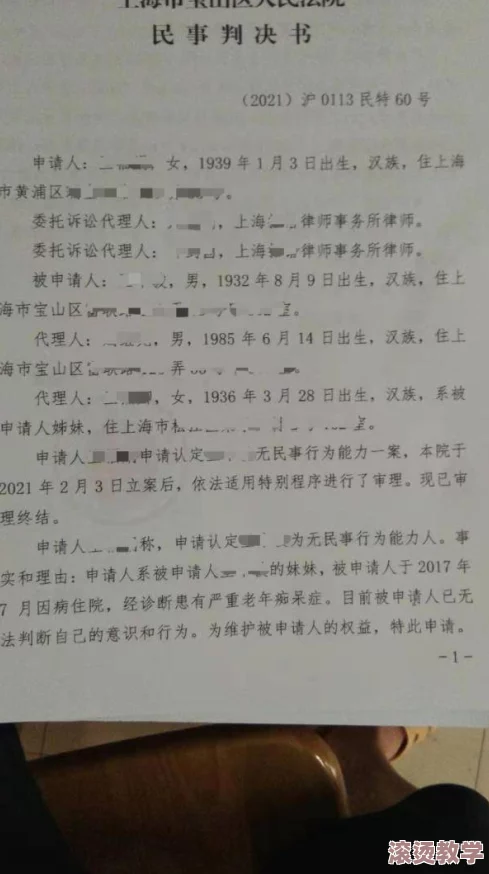 上海市宝山区人民法院
民事判决书
（2021）沪0113民特60号
申请人：女，1939年1月3日出生，汉族，住上海
市黄浦区
委托诉讼代理人：，上海律师事务所律师。
委托诉讼代理人：，上海律师事务所律师。
被申请人：，男，1932年8月9日出生，汉族，住上
海市宝山区
代理人：，男，1985年6月14日出生，汉族，住上
海市宝山区弄
代理人：，女，1936年3月28日出生，汉族，系被
申请人姊妹，住上海市松
申请人申请认定无民事行为能力一案，本院于
2021年2月3日立案后，依法适用特别程序进行了审理。现已审
理终结。
申请人称，申请认定为无民事行为能力人。事
实和理由：申请人系被申请人的妹妹，被申请人于2017年
7月因病住院，经诊断患有严重老年痴呆症。目前被申请人已无
法判断自己的意识和行为。为维护被申请人的权益，特此申请。
-1-
滚烫教学